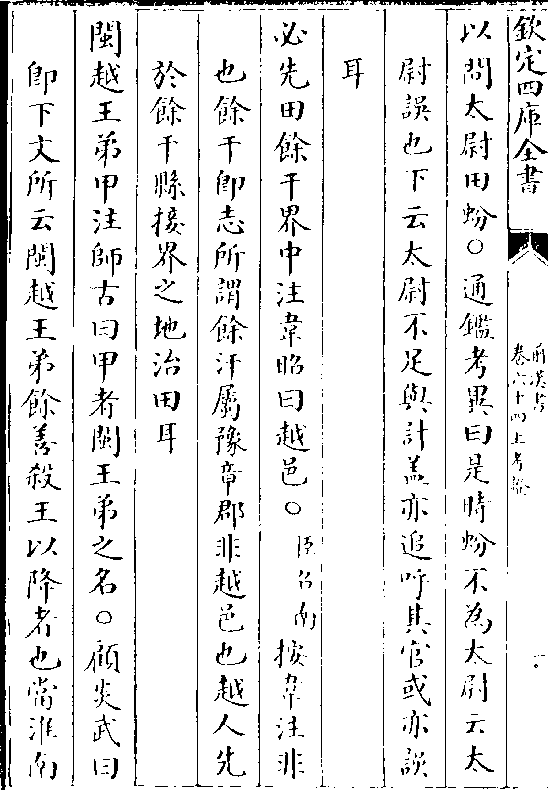 欽定四庫全書
前漢書
卷六十四上考證
以問太尉田蚡〇通鑑考異曰是時蚡不為太尉云太
尉誤也下云太尉不足與計蓋亦追呼其官或亦誤
耳
必先田餘干界中注韋昭曰越邑〇臣召南按韋注非
也餘干即志所謂餘汗屬豫章郡非越邑也越人先
於餘干縣接界之地治田耳
閩越王弟甲注師古曰甲者閩王弟之名〇顧炎武曰
即下文所云閩越王弟餘善殺王以降者也當淮南